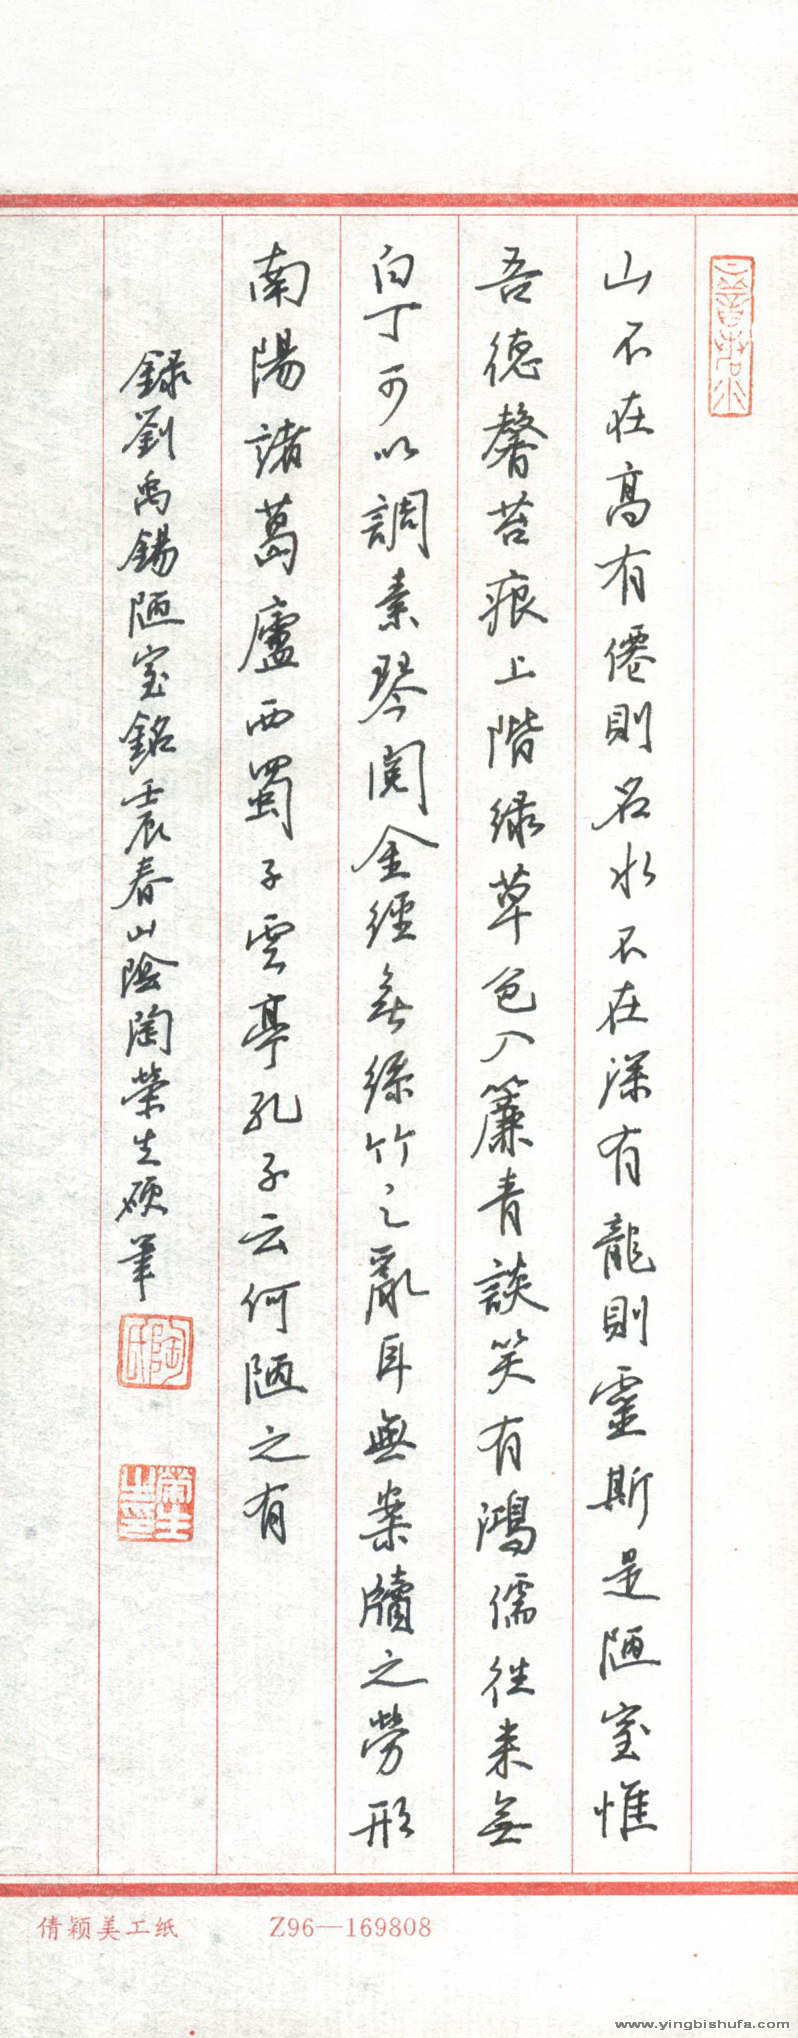 山不在高有僊則名水不在深有龍則靈斯是陋室惟
吾德馨苔痕上階緑草色入簾青談笑有鴻儒往来無
白丁可以調素琴閱金經無絲竹之亂耳無案牘之勞形
南陽諸葛廬西蜀子雲亭孔子云何陋之有
録劉禹錫陋室銘壬辰春山陰陶榮生硬筆
陶氏
榮生之印
倩颖美工纸 Z96—169808
www.yingbishufa.com